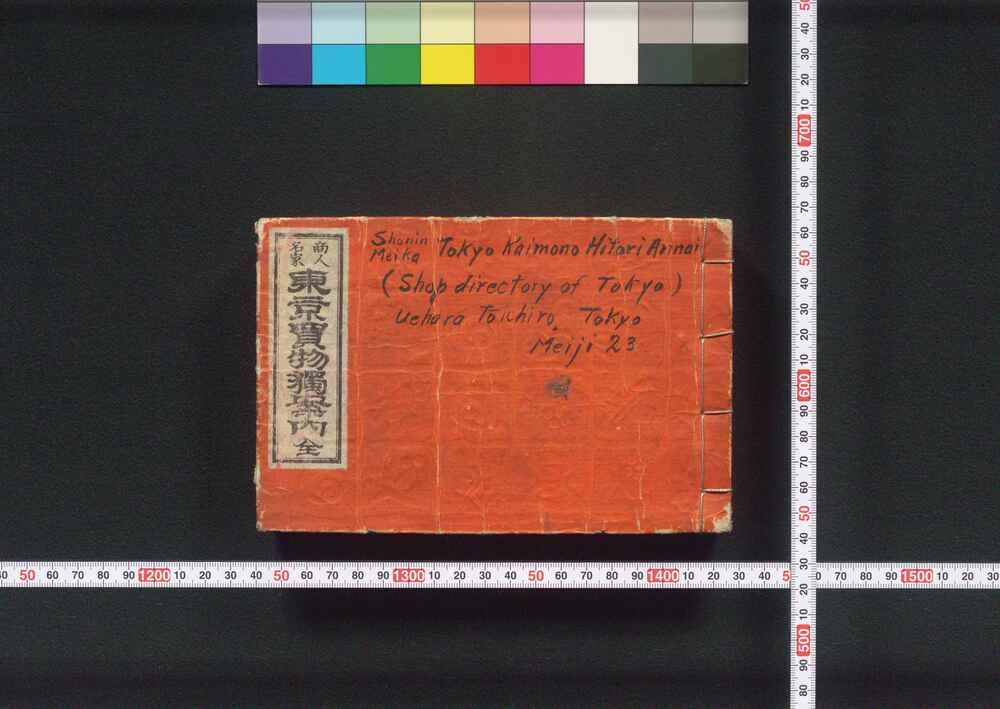 商人
名家
東京買物獨案内 全
Shonin
Meika
Tokyo Kaimono Hitori Annai
(Shop directory of Tokyo)
Uehara Toichiro, Tokyo
Meiji 23
50
40
30
20
10
700
90
80
70
60
50
40
30
20
10
600
90
80
70
60
50
40
30
20
10
500
90
80
40 50 60 70 80 90 1200 10 20 30 40 50 60 70 80 90 1300 10 20 30 40 50 60 70 80 90 1400 10 20 30 40 5 0 70 80 90 1500 10 20 30